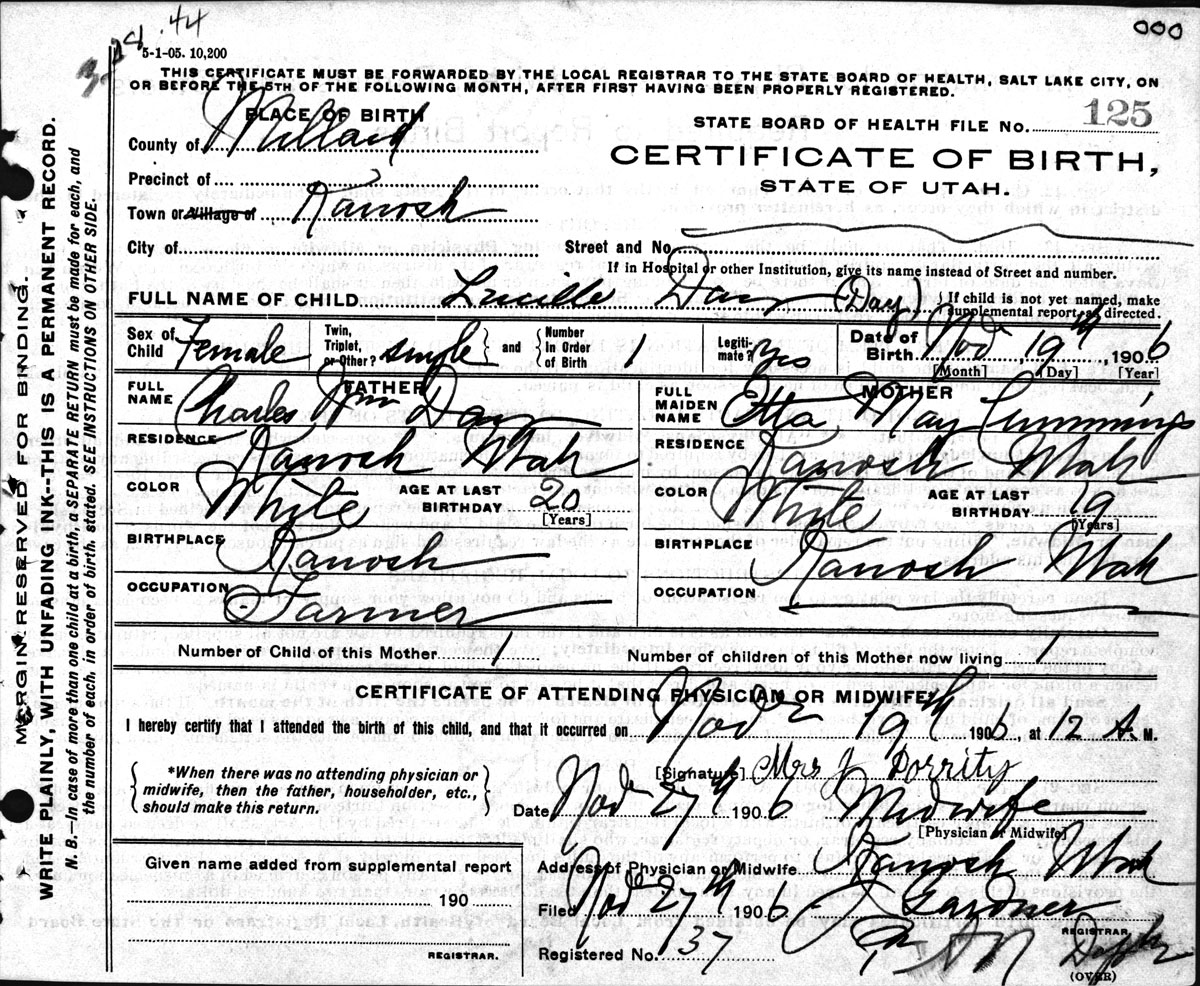 000
44
5-1-05. 10,200
THIS CERTIFICATE MUST BE FORWARDED BY THE LOCAL REGISTRAR TO THE STATE BOARD OF HEALTH, SALT LAKE CITY, ON
OR BEFORE THE 5TH OF THE FOLLOWING MONTH, AFTER FIRST HAVING BEEN PROPERLY REGISTERED.
PLACE OF BIRTH
County of Millard
Precinct of
Town or Village of Kanosh
City of
STATE BOARD OF HEALTH FILE No. 125
CERTIFICATE OF BIRTH,
STATE OF UTAH.
Street and No.
If in Hospital or other Institution, give its name instead of Street and number.
FULL NAME OF CHILD Lucille Day (Day) { If child is not yet named, make
supplemental report, as directed.
Sex of Child Female
Twin, Triplet, or Other? single } and { Number In Order of Birth 1
Legitimate? Yes
Date of Birth Nov 19th, 1906
[Month] [Day] [Year]
FATHER
FULL NAME Charles Wm Day
RESIDENCE Kanosh Utah
COLOR White AGE AT LAST BIRTHDAY 20
[Years]
BIRTHPLACE Kanosh
OCCUPATION Farmer
MOTHER
FULL MAIDEN NAME Etta May Cummings
RESIDENCE Kanosh Utah
COLOR White AGE AT LAST BIRTHDAY 19
[Years]
BIRTHPLACE Kanosh Utah
OCCUPATION
Number of Child of this Mother 1 Number of children of this Mother now living 1
CERTIFICATE OF ATTENDING PHYSICIAN OR MIDWIFE
I hereby certify that I attended the birth of this child, and that it occurred on Nov 19th 1906, at 12 A. M.
{ *When there was no attending physician or
midwife, then the father, householder, etc.,
should make this return. }
[Signature] Mrs J Dorrity
Date Nov 27th 1906 Midwife
[Physician or Midwife]
Given name added from supplemental report
190
REGISTRAR.
Address of Physician or Midwife Kanosh Utah
Filed Nov 27th 1906 Gardner
REGISTRAR
Registered No. 37
(OVER)
MARGIN RESERVED FOR BINDING.
WRITE PLAINLY, WITH UNFADING INK--THIS IS A PERMANENT RECORD.
N. B.—In case of more than one child at a birth, a SEPARATE RETURN must be made for each, and
the number of each, in order of birth, stated. SEE INSTRUCTIONS ON OTHER SIDE.